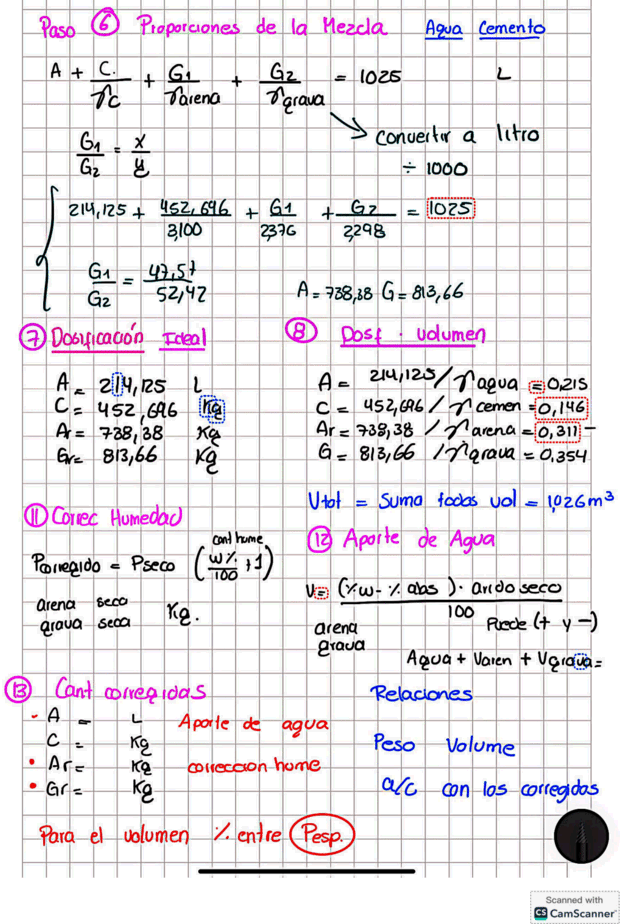 Paso ⑥ Proporciones de la Mezcla Agua Cemento
A + C./γc + G1/γarena + G2/γgrava = 1025 L
convertir a litro
÷ 1000
G1/G2 = x/y
214,125 + 452,696/3,100 + G1/2,376 + G2/2,298 = 1025
G1/G2 = 47,57/52,42
A = 738,38 G = 813,66
⑦ Dosificación Ideal
A = 214,125 L
C = 452,696 Kg
Ar = 738,38 Kg
Gr = 813,66 Kg
⑧ Dosf. volumen
A = 214,125/γagua = 0,215
C = 452,696/γcemen = 0,146
Ar = 738,38/γarena = 0,311
G = 813,66/γgrava = 0,354
Vtot = Suma todos vol = 1,026 m³
⑪ Correc Humedad
cont hume
Pcorregido = Pseco (w%/100 + 1)
arena seco
grava seca Kg.
⑫ Aporte de Agua
V = (%w - % abs) · arido seco / 100
Puede (+ y -)
arena
grava
Agua + Varen + Vgrava =
⑬ Cant corregidas
- A = L Aporte de agua
C = Kg
• Ar = Kg correccion hume
• Gr = Kg
Relaciones
Peso Volume
a/c con los corregidos
Para el volumen % entre Pesp.
Scanned with
CS CamScanner